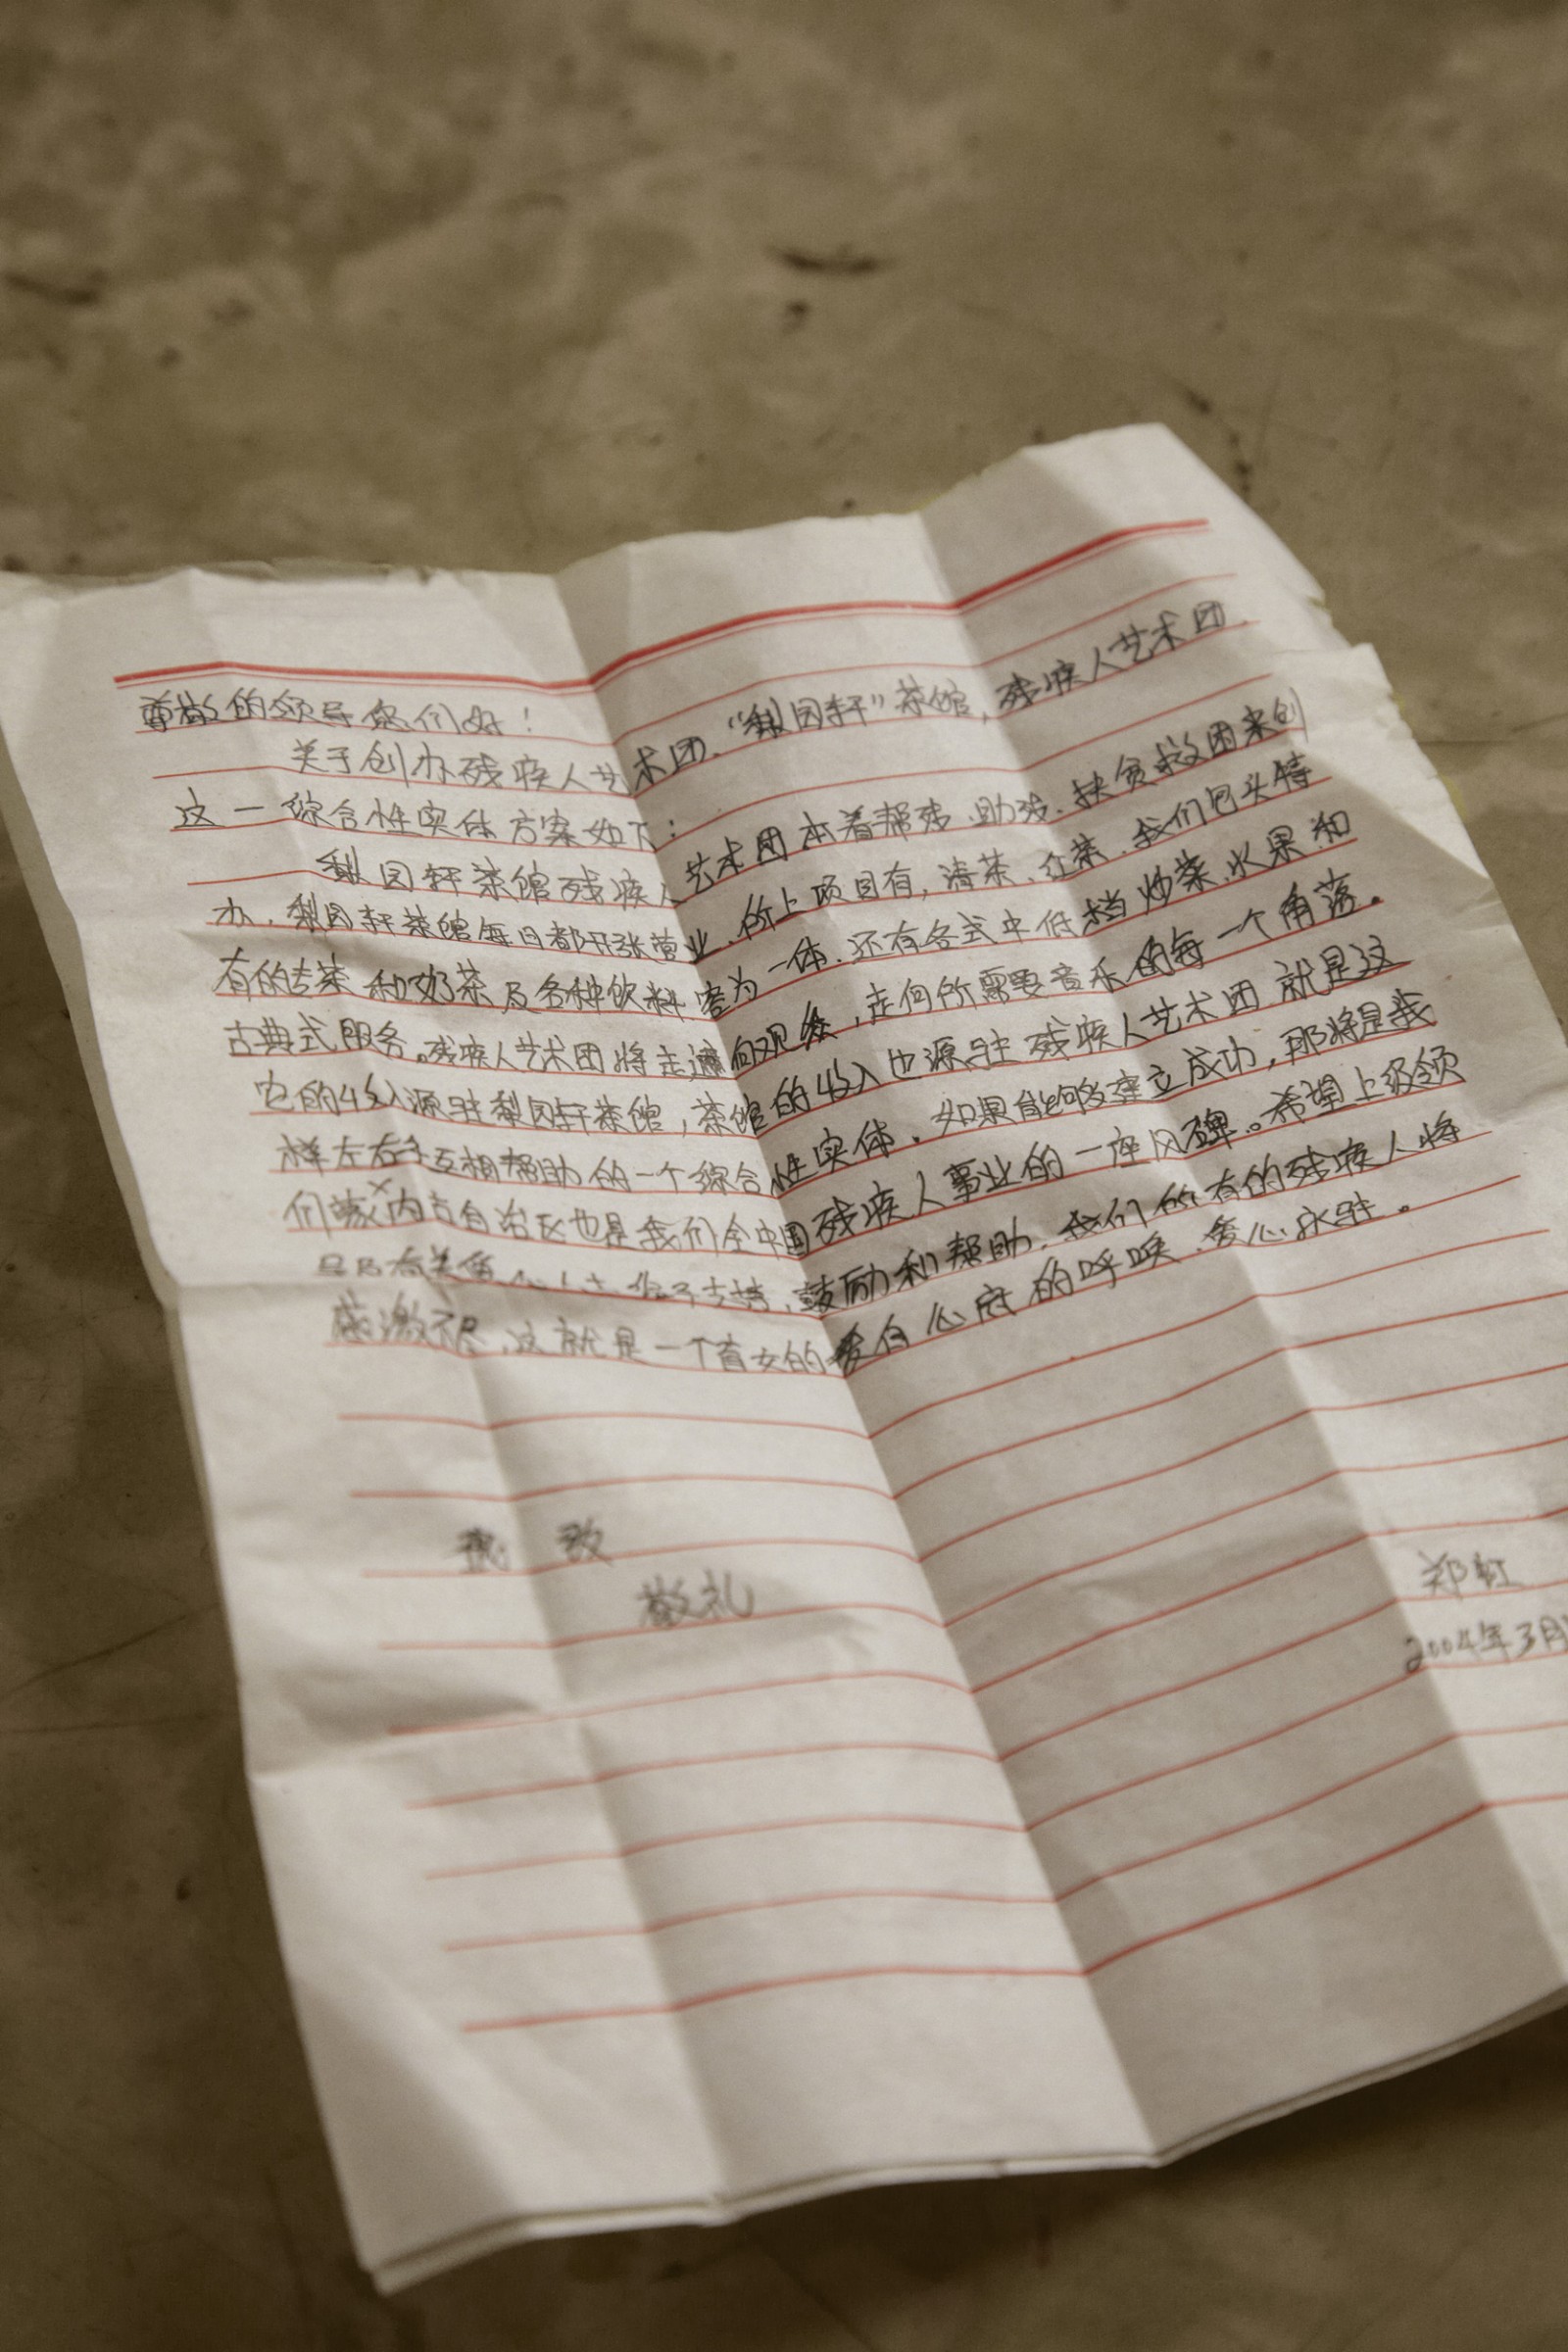 尊敬的领导您们好！
关于创办残疾人艺术团、“梨园轩”茶馆，残疾人艺术团、
这一综合性实体方案如下：
梨园轩茶馆残疾人艺术团本着帮残、助残、扶贫救困来创
办，梨园轩茶馆每日都开张营业，价上项目有，清茶、红茶、我们包头特
有的砖茶和奶茶及各种饮料 为一体，还有各式中低档炒菜、水果和
古典式服务。残疾人艺术团将走 向观众，走向所需要音乐的每一个角落。
它的收入源 梨园轩茶馆，茶馆的收入也源 残疾人艺术团 就是这
样左右手互相帮助的一个综合性实体，如果能够建立成功，那将是我
们 内 自治区也是我们全中国残疾人事业的一座风碑。希望上级领
给予支持、鼓励和帮助，我们所有的残疾人将
感激不尽，这就是一个盲女的 自心底的呼唤，爱心永驻。
致
敬礼
郑虹
2004年3月